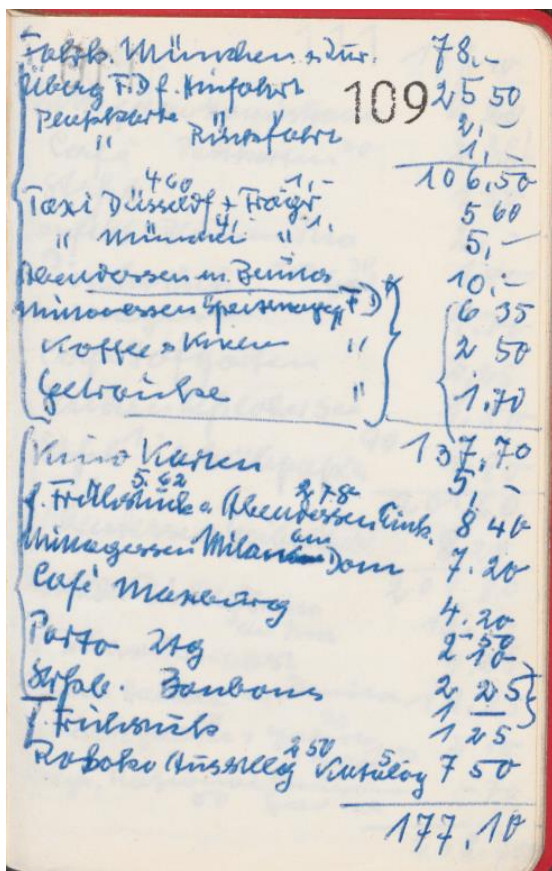 Fahrk. München u. Zur. 78.-
109
Überg FD f. Hinfahrt 25 50
Platzkarte " 2,
" Rückfahrt 1,-
106,50
460 1,-
Taxi Düsseldf + Träger 5 60
4, 1,
" München " 5,-
Abendessen m. 10,-
Mittagessen Speisewagen FD 6 35
Koffee u Kuchen " 2 50
Getränke " 1,70
137,70
Kino Karten 5,-
5.62 278
f. Frühstück u Abendessen Eink. 8 40
Mittagessen am Dom 7.20
Café 4.20
2 50
Porto Ztg 2 10
Strßb. Bonbons 2 25
1 -
f. Frühstück 1 25
2 50 5
Rokoko Ausstellg Katalog 7 50
177,10